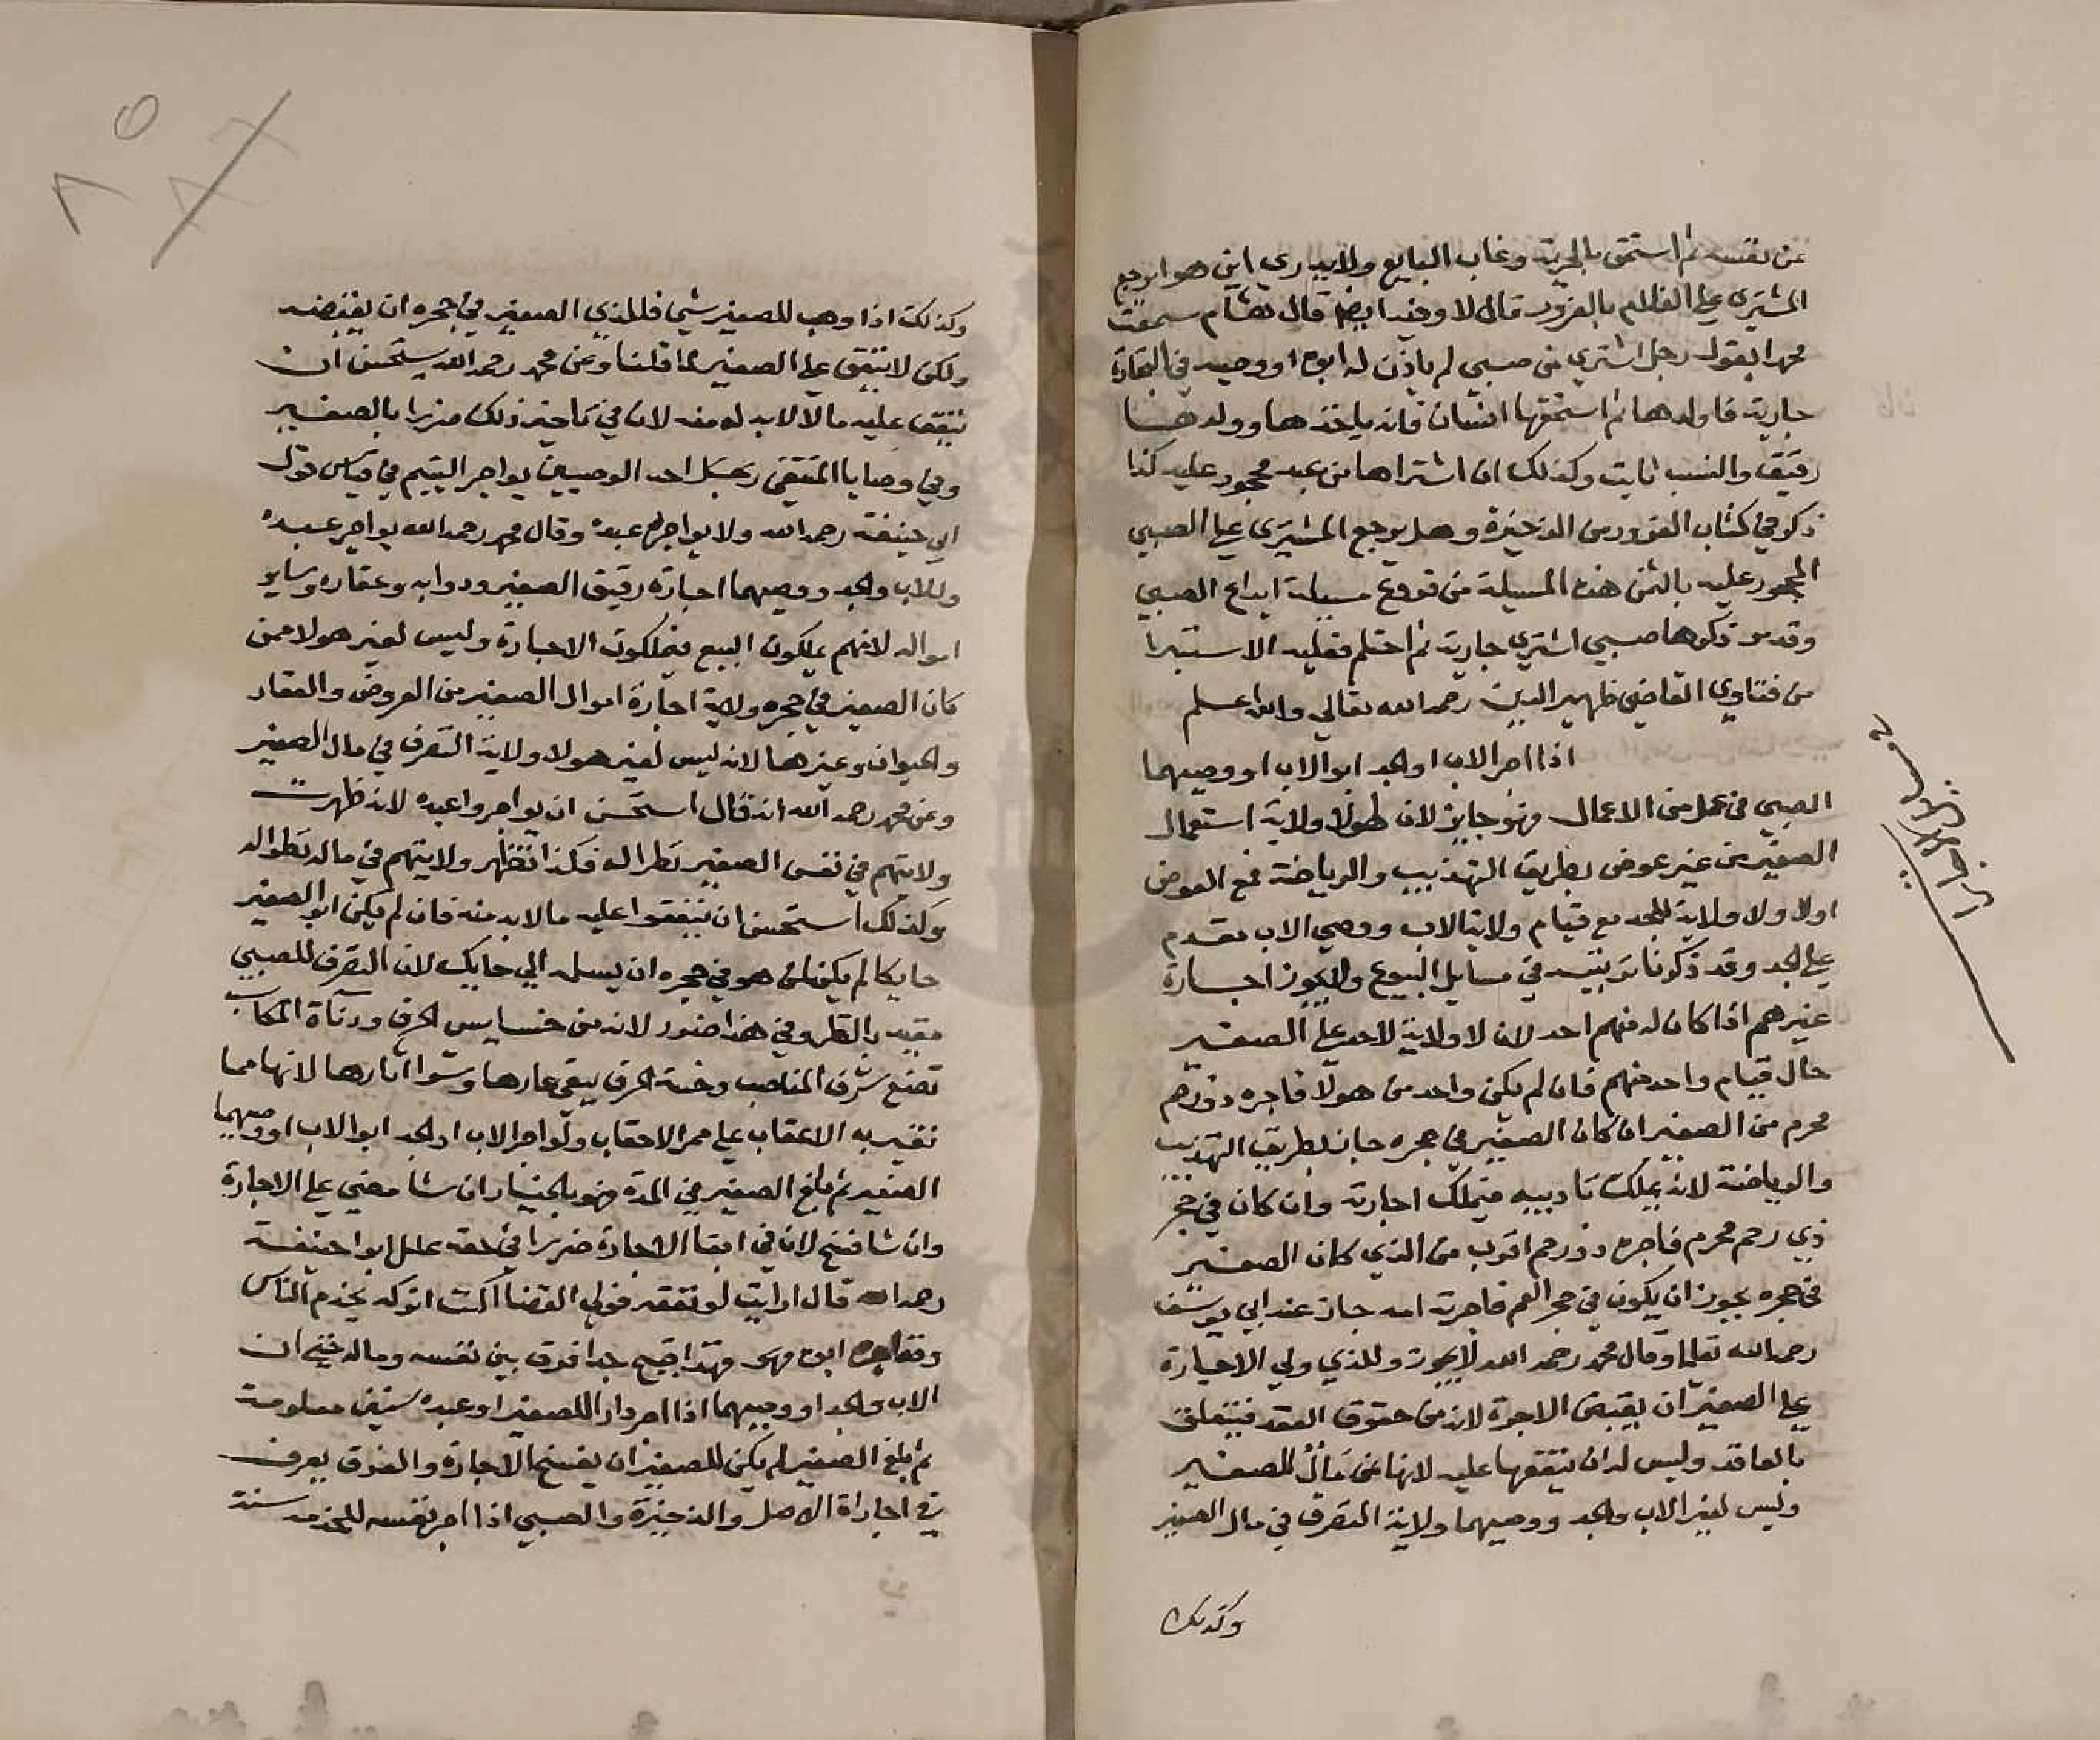 عن نفسه ثم استحق بالحرية وغاب البايع ولا يدري اين هو ايرجع
المشتري علي الغلام بالغرور قال لا وفيه ايضا قال هشام سمعت
محمدا يقول رجل اشتري من صبي لم ياذن له ابوه او وصيه في التجارة
جارية فاولدها ثم استحقها انسان فانه ياخذها وولدها
رقيق والنسب ثابت وكذلك ان اشتراها من عبد محجور عليه كذا
ذكر في كتاب الغرور من الذخيرة وهل يرجع المشتري علي الصبي
المحجور عليه بالثمن هذه المسيلة من فروع مسيلة ايداع الصبي
وقد مر ذكرها صبي اشتري جارية ثم احتلم فعليه الاستبرا
من فتاوي القاضي ظهير الدين رحمه الله تعالي والله اعلم
اذا اجر الاب او الجد ابو الاب او وصيهما
الصبي في عمل من الاعمال فهو جايز لان لهولا ولاية استعمال
الصغير من غير عوض بطريق التهذيب والرياضة فمع العوض
اولا ولا ولاية للجد مع قيام ولاية الاب ووصي الاب مقدم
علي الجد وقد ذكرنا ترتيبه في مسايل البيوع ولا يجوز اجارة
غيرهم اذا كان له منهم احد لان لا ولاية لاحد علي الصغير
حال قيام واحد منهم فان لم يكن واحد من هولا فاجره ذو رحم
محرم من الصغير ان كان الصغير في حجره جاز بطريق التهذيب
والرياضة لانه يملك تاديبه فيملك اجارته وان كان في حجر
ذي رحم محرم فاجره ذو رحم اقرب من الذي كان الصغير
في حجره يجوز ان يكون في حجر العم فاجرته امه جاز عند ابي يوسف
رحمه الله تعالي وقال محمد رحمه الله لا يجوز وللذي ولي الاجارة
علي الصغير ان يقبض الاجرة لانه من حقوق العقد فيتعلق
بالعاقد وليس له ان ينفقها عليه لانها من مال للصغير
وليس لغير الاب والجد ووصيهما ولاية التصرف في مال الصغير
وكذلك
وكذلك اذا وهب للصغير شي فللذي الصغير في حجره ان يقبضه
ولكن لا ينفق علي الصغير لما قلنا وعن محمد رحمه الله يستحسن ان
ينفق عليه ما لا لابد له منه لان في تاخير ذلك ضررا بالصغير
وفي وصايا المنتقي رجل احد الوصيين يواجر اليتيم في قياس قول
ابي حنيفة رحمه الله ولا يواجر عبده وقال محمد رحمه الله يواجر عبده
وللاب والجد ووصيهما اجارة رقيق الصغير ودوابه وعقاره وساير
امواله لانهم يملكون البيع فيملكون الاجارة وليس لغير هولا ممن
كان الصغير في حجره ولاية اجارة اموال الصغير من العروض والعقار
والحيوان وغيرها لانه ليس لغير هولا ولاية التصرف في مال الصغير
وعن محمد رحمه الله انه قال استحسن ان يواجروا عبده لانه ظهرت
ولايتهم في نفس الصغير نظرا له فكذا تظهر ولايتهم في ماله نظرا له
وكذلك استحسن ان ينفقوا عليه ما لا بد منه فان لم يكن ابو الصغير
حايكا لم يكن لمن هو في حجره ان يسلمه الي حايك لان التصرف للصبي
مقيد بالنظر وفي هذا ضرر لانه من خسايس الحرف ودناة المكاسب
تضع شرف المناصب وخسة الحرف يبقي عارها وسوا اثارها لانها مما
تعير به الاعقاب علي ممر الاحقاب ولو اجر الاب او الجد ابو الاب او وصيهما
الصغير ثم بلغ الصغير في المدة فهو بالخيار ان شا مضي علي الاجارة
وان شا فسخ لان في ابقا الاجارة ضررا في حقه علل ابو حنيفة
رحمه الله قال ارايت لو تفقه فولي القضا اكنت اتركه يخدم الناس
وقد اجره ابوه فهذا قبيح جدا فرق بين نفسه وماله فان
الاب والجد او وصيهما اذا اجر دار للصغير او عبده سنين معلومة
ثم بلغ الصغير لم يكن للصغير ان يفسخ الاجارة والفرق يعرف
في اجاراة الاصل والذخيرة والصبي اذا اجر نفسه للخدمة سنة